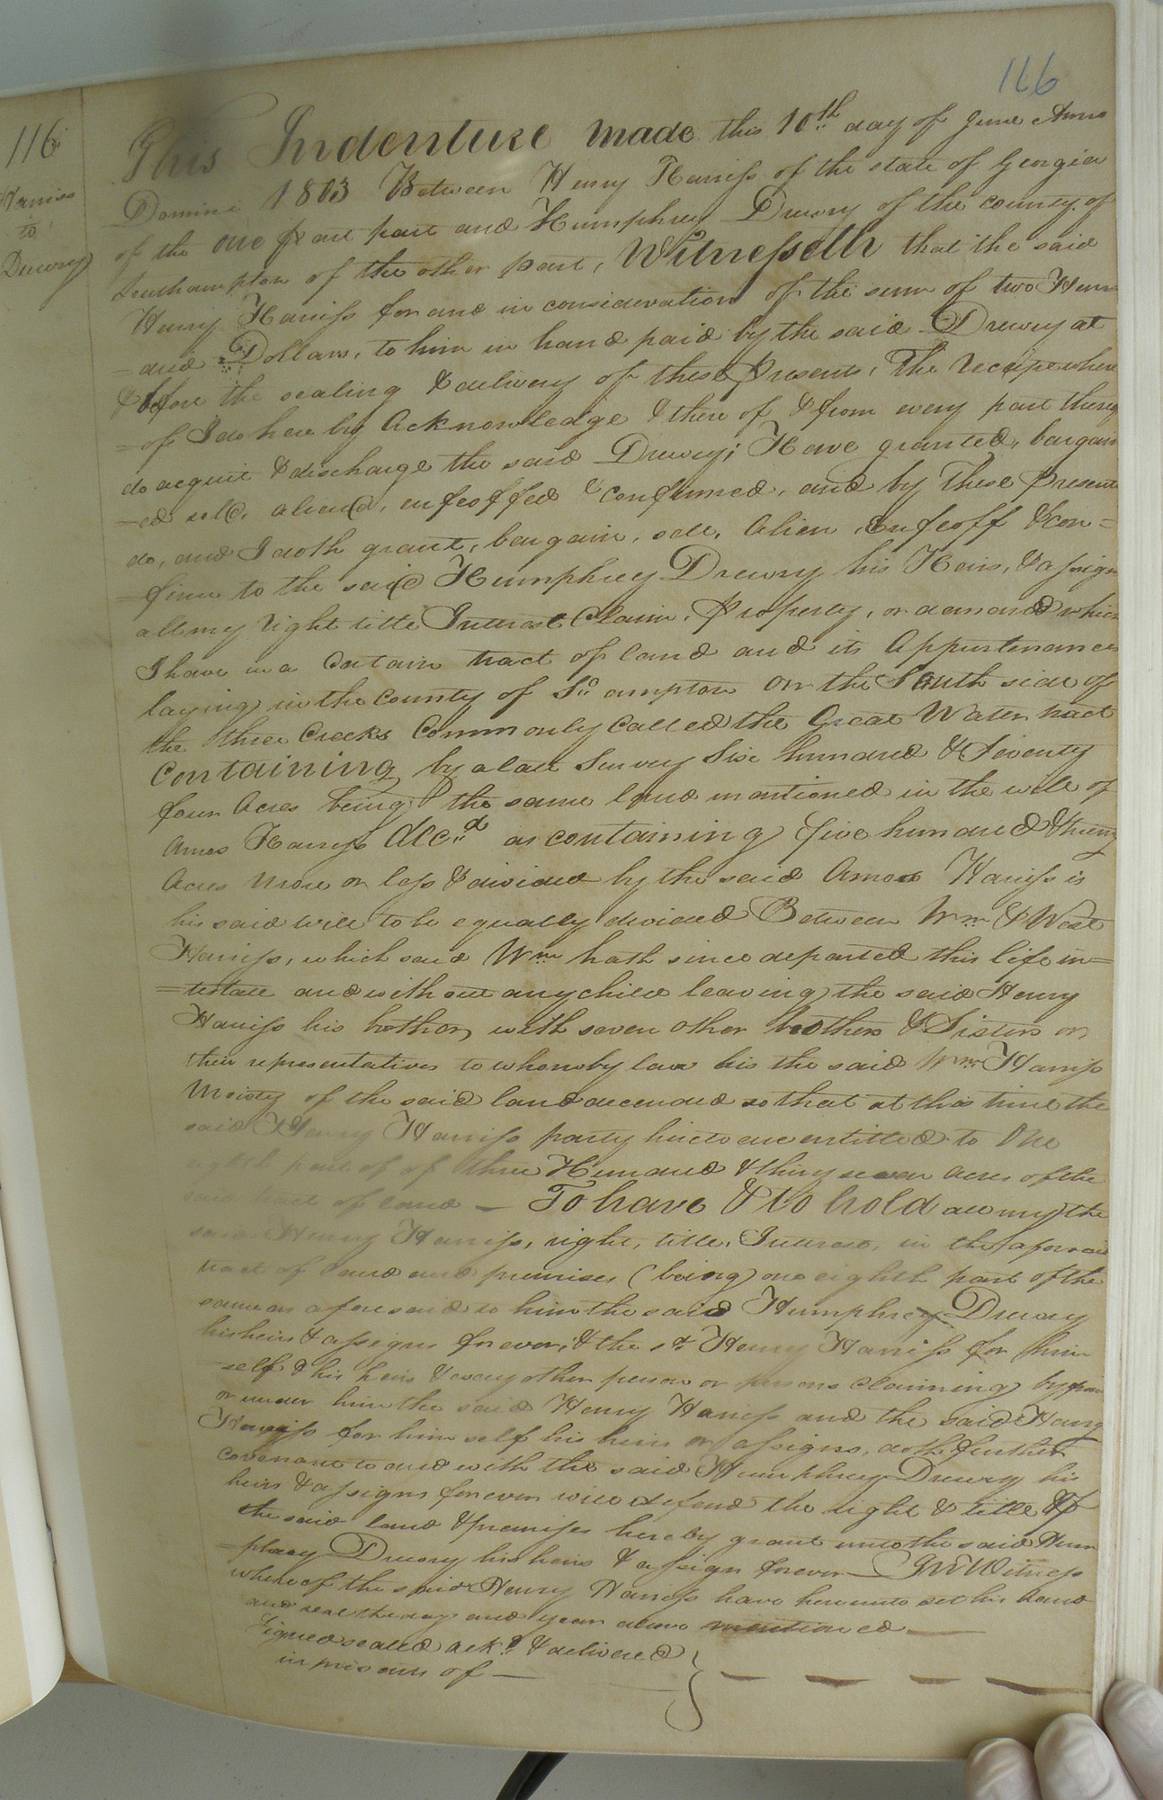 116
116
Harriss
to
Drewry
This Indenture made this 10th day of June Anno
Domini 1803 Between Henry Harriss of the state of Georgia
of the one part and Humphrey Drewry of the county of
Southampton of the other part, Witnesseth that the said
Henry Harriss for and in consideration of the sum of two Hun
=and Dollars, to him in hand paid by the said Drewry at
& before the sealing & delivery of these Presents, The Receipt where
=of I do here by Acknowledge & there of & from every part thereof
do acquit & discharge the said Drewry; Have granted, bargain
=ed sold, aliened, enfeoffed & confirmed, and by These Presents
do, and I doth grant, bargain, sell, Alien, Enfeoff & con=
=firm to the said Humphrey Drewry his Heirs, & assigns
all my right title Interest Claim, Property, or demand which
I have in a Certain tract of land and its Appurtenances
laying in the county of So ampton On the South side of
the three Creeks Commonly Called the Great Water tract
Containing by a late Survey Six hundred & Seventy
four Acres being the same land mentioned in the will of
Amos Harriss Decd as containing five hundred & thirty
Acres more or less & divided by the said Amos Harriss in
his said will to be equally divided Between Wm & West
Harriss, which said Wm hath since departed this life in=
=testate and without any child leaving the said Henry
Harriss his brother, with seven other brothers & Sisters or
their representatives to whom by law his the said Wm Harriss
Moiety of the said land decended so that at this time the
said Henry Harriss party hireto are entitled to One
eighth part of of three Hundred & thirty seven Acres of the
said tract of land — To have & to hold all my the
said Henry Harriss, right, title, Interest, in the aforesaid
tract of land and premises (being) one eighth part of the
same as aforesaid to him the said Humphrey Drewry
his heirs & assigns forever, & the sd Henry Harriss for him
self & his heirs & every other person or persons claiming by from
or under him the said Henry Harriss and the said Henry
Harriss for him self his heirs or assigns, doth further
covenant to and with the said Humphrey Drewry his
heirs & assigns forever will defend the right & title of
the said land & premises hereby grant unto the said Hum
=phrey Drewry his heirs & assigns forever — In Witness
where of the said Henry Harriss have hereunto set his hand
and seal the day and year above mentioned —
Signed sealed ackd & delivered
in presents of —